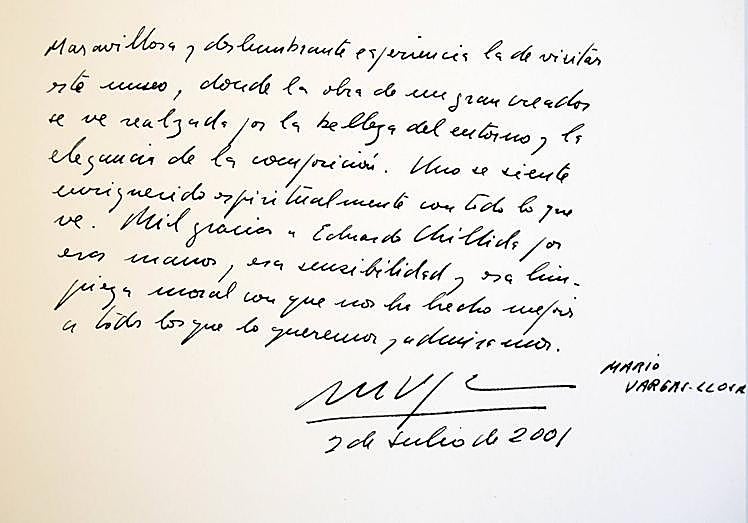 Maravillosa y deslumbrante experiencia la de visitar
este museo, donde la obra de un gran creador
se ve realzada por la belleza del entorno y la
elegancia de la composición. Uno se siente
enriquecido espiritualmente con todo lo que
ve. Mil gracias a Eduardo Chillida por
esas manos, esa sensibilidad y esa lim-
pieza moral con que nos ha hecho mejor
a todos los que lo queremos y admiramos.
MARIO
VARGAS-LLOSA
2 de Julio de 2001